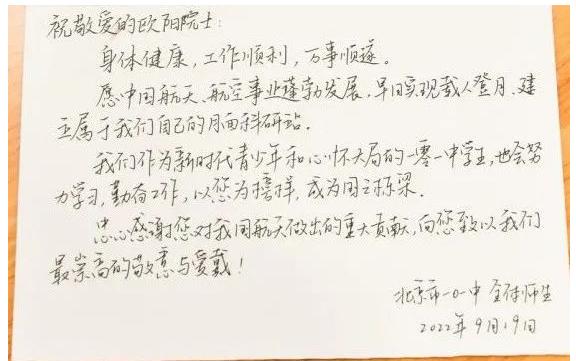 祝敬爱的欧阳院士:
身体健康,工作顺利,万事顺遂。
愿中国航天、航空事业蓬勃发展,早日实现载人登月、建
立属于我们自己的月面科研站.
我们作为新时代青少年和心怀大局的一零一中学生,也会努
力学习,勤奋工作,以您为榜样,成为国之栋梁.
忠心感谢您对我国航天做出的重大贡献,向您致以我们
最崇高的敬意与爱戴!
北京市一0一中 全体师生
2022年9月19日